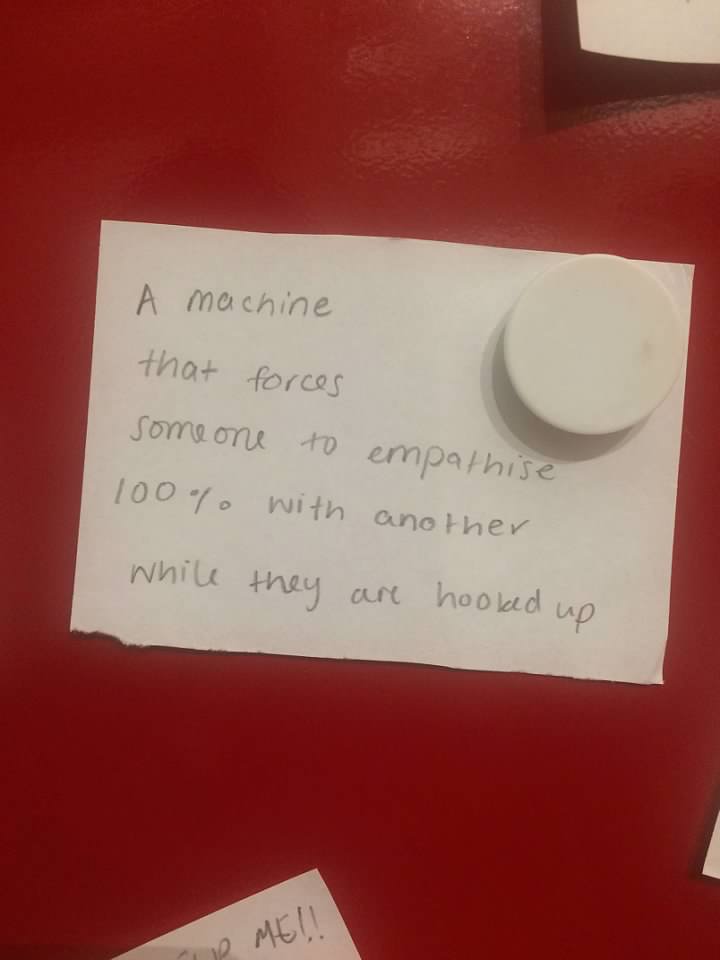 A machine
that forces
someone to empathise
100% with another
while they are hooked up
ME!!